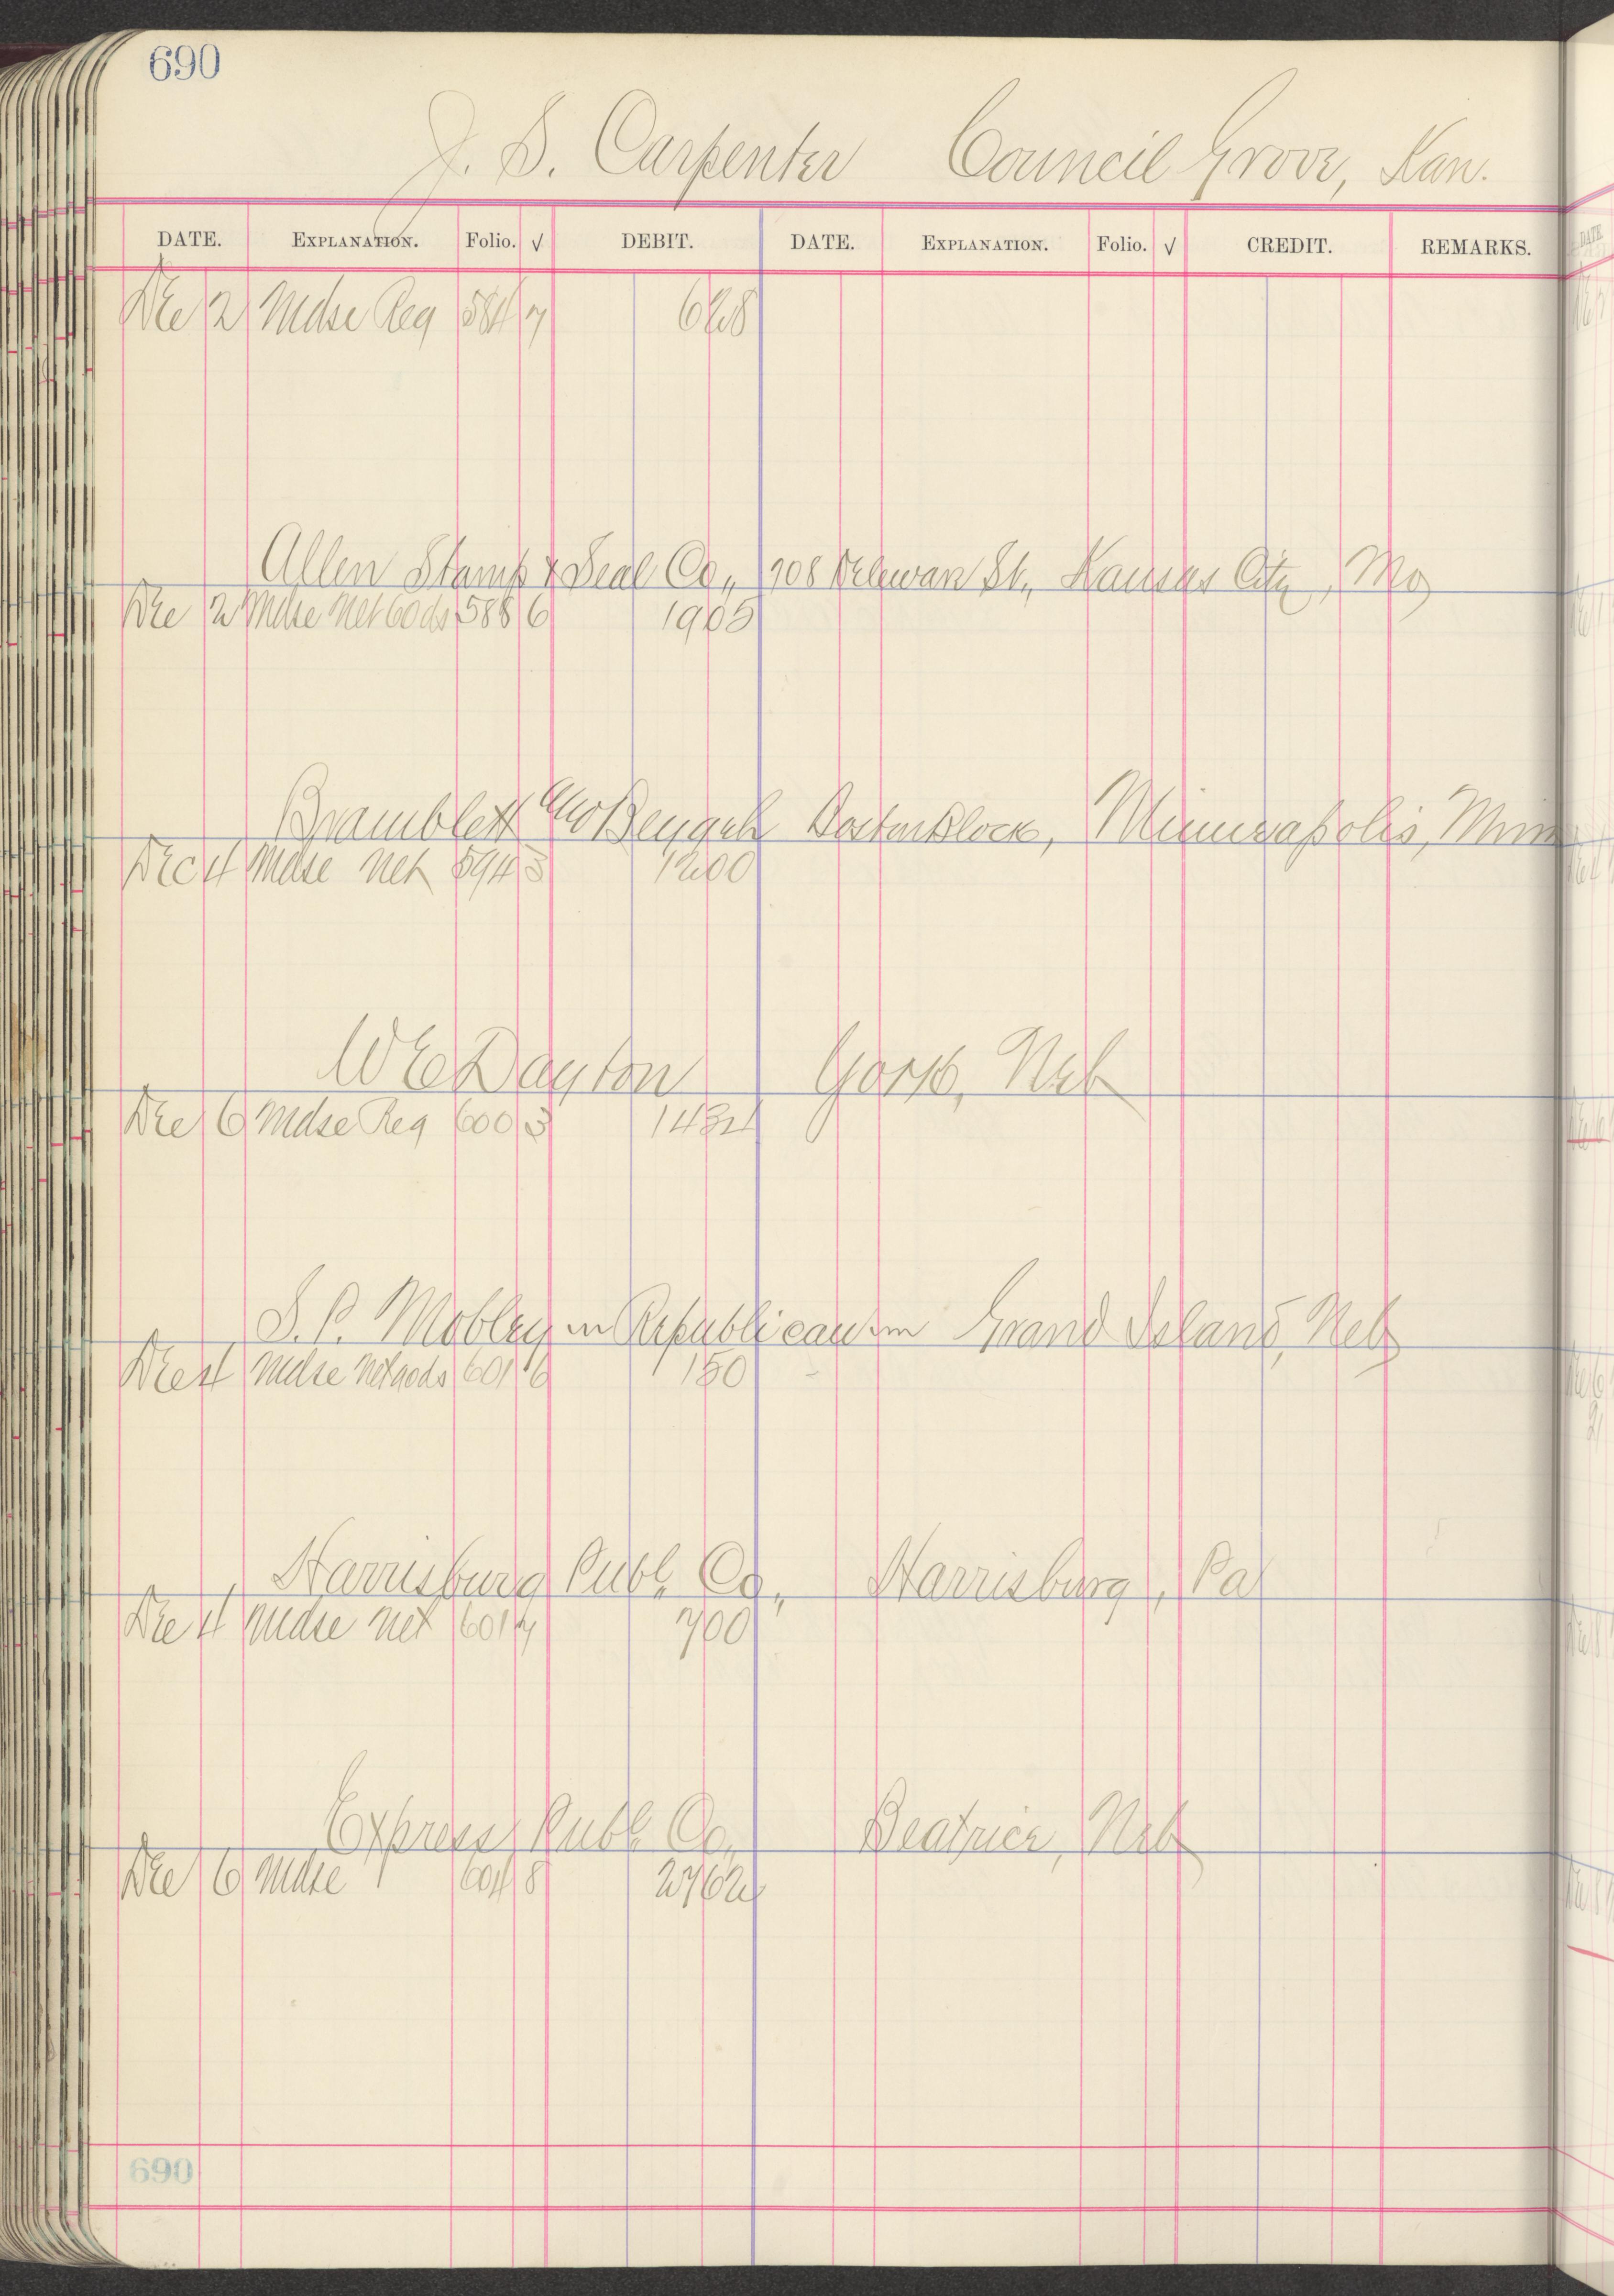 690
J. S. Carpenter Council Grove, Kan.
DATE. EXPLANATION. Folio. √ DEBIT. DATE. EXPLANATION. Folio. √ CREDIT. REMARKS.
Dec 2 Mdse Reg 5847 628
Allen Stamp & Seal Co., 708 St., Kansas City, Mo
Dec 2 Mdse Net 60 ds 5886 1905
Bramblett Boston Block, Minneapolis, Minn
Dec 4 Mdse Net 5943 1200
W E Dayton York, Neb
Dec 6 Mdse Reg 6003 1432
S. P. Mobley Republican Grand Island, Neb
Dec 4 Mdse Net 6016 150
Harrisburg Publ. Co., Harrisburg, Pa
Dec 4 Mdse Net 6017 700
Express Publ. Co., Beatrice, Neb
Dec 6 Mdse 6018 2762
690